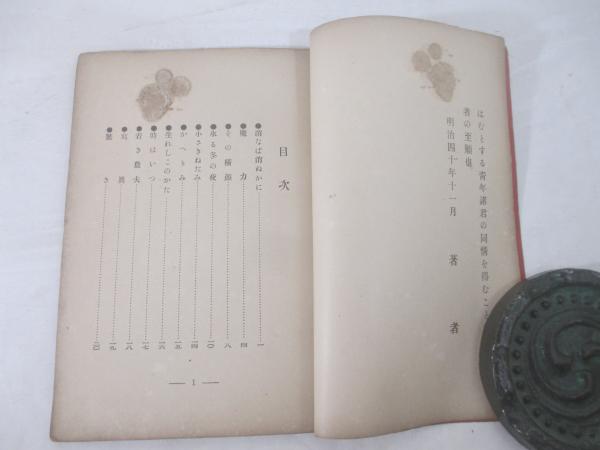 はむとする青年諸君の同情を得むこと
者の至願也。
明治四十年十一月
著者
目次
●消なば消ぬかに………一
●魔力………四
●その橫顏………八
●氷る冬の夜………一〇
●小さきねたみ………一四
●かへりみ………一五
●生れしこのかた………一六
●時はいつ………一七
●若き農夫………一八
●寫眞………一九
さ………二〇
— 1 —